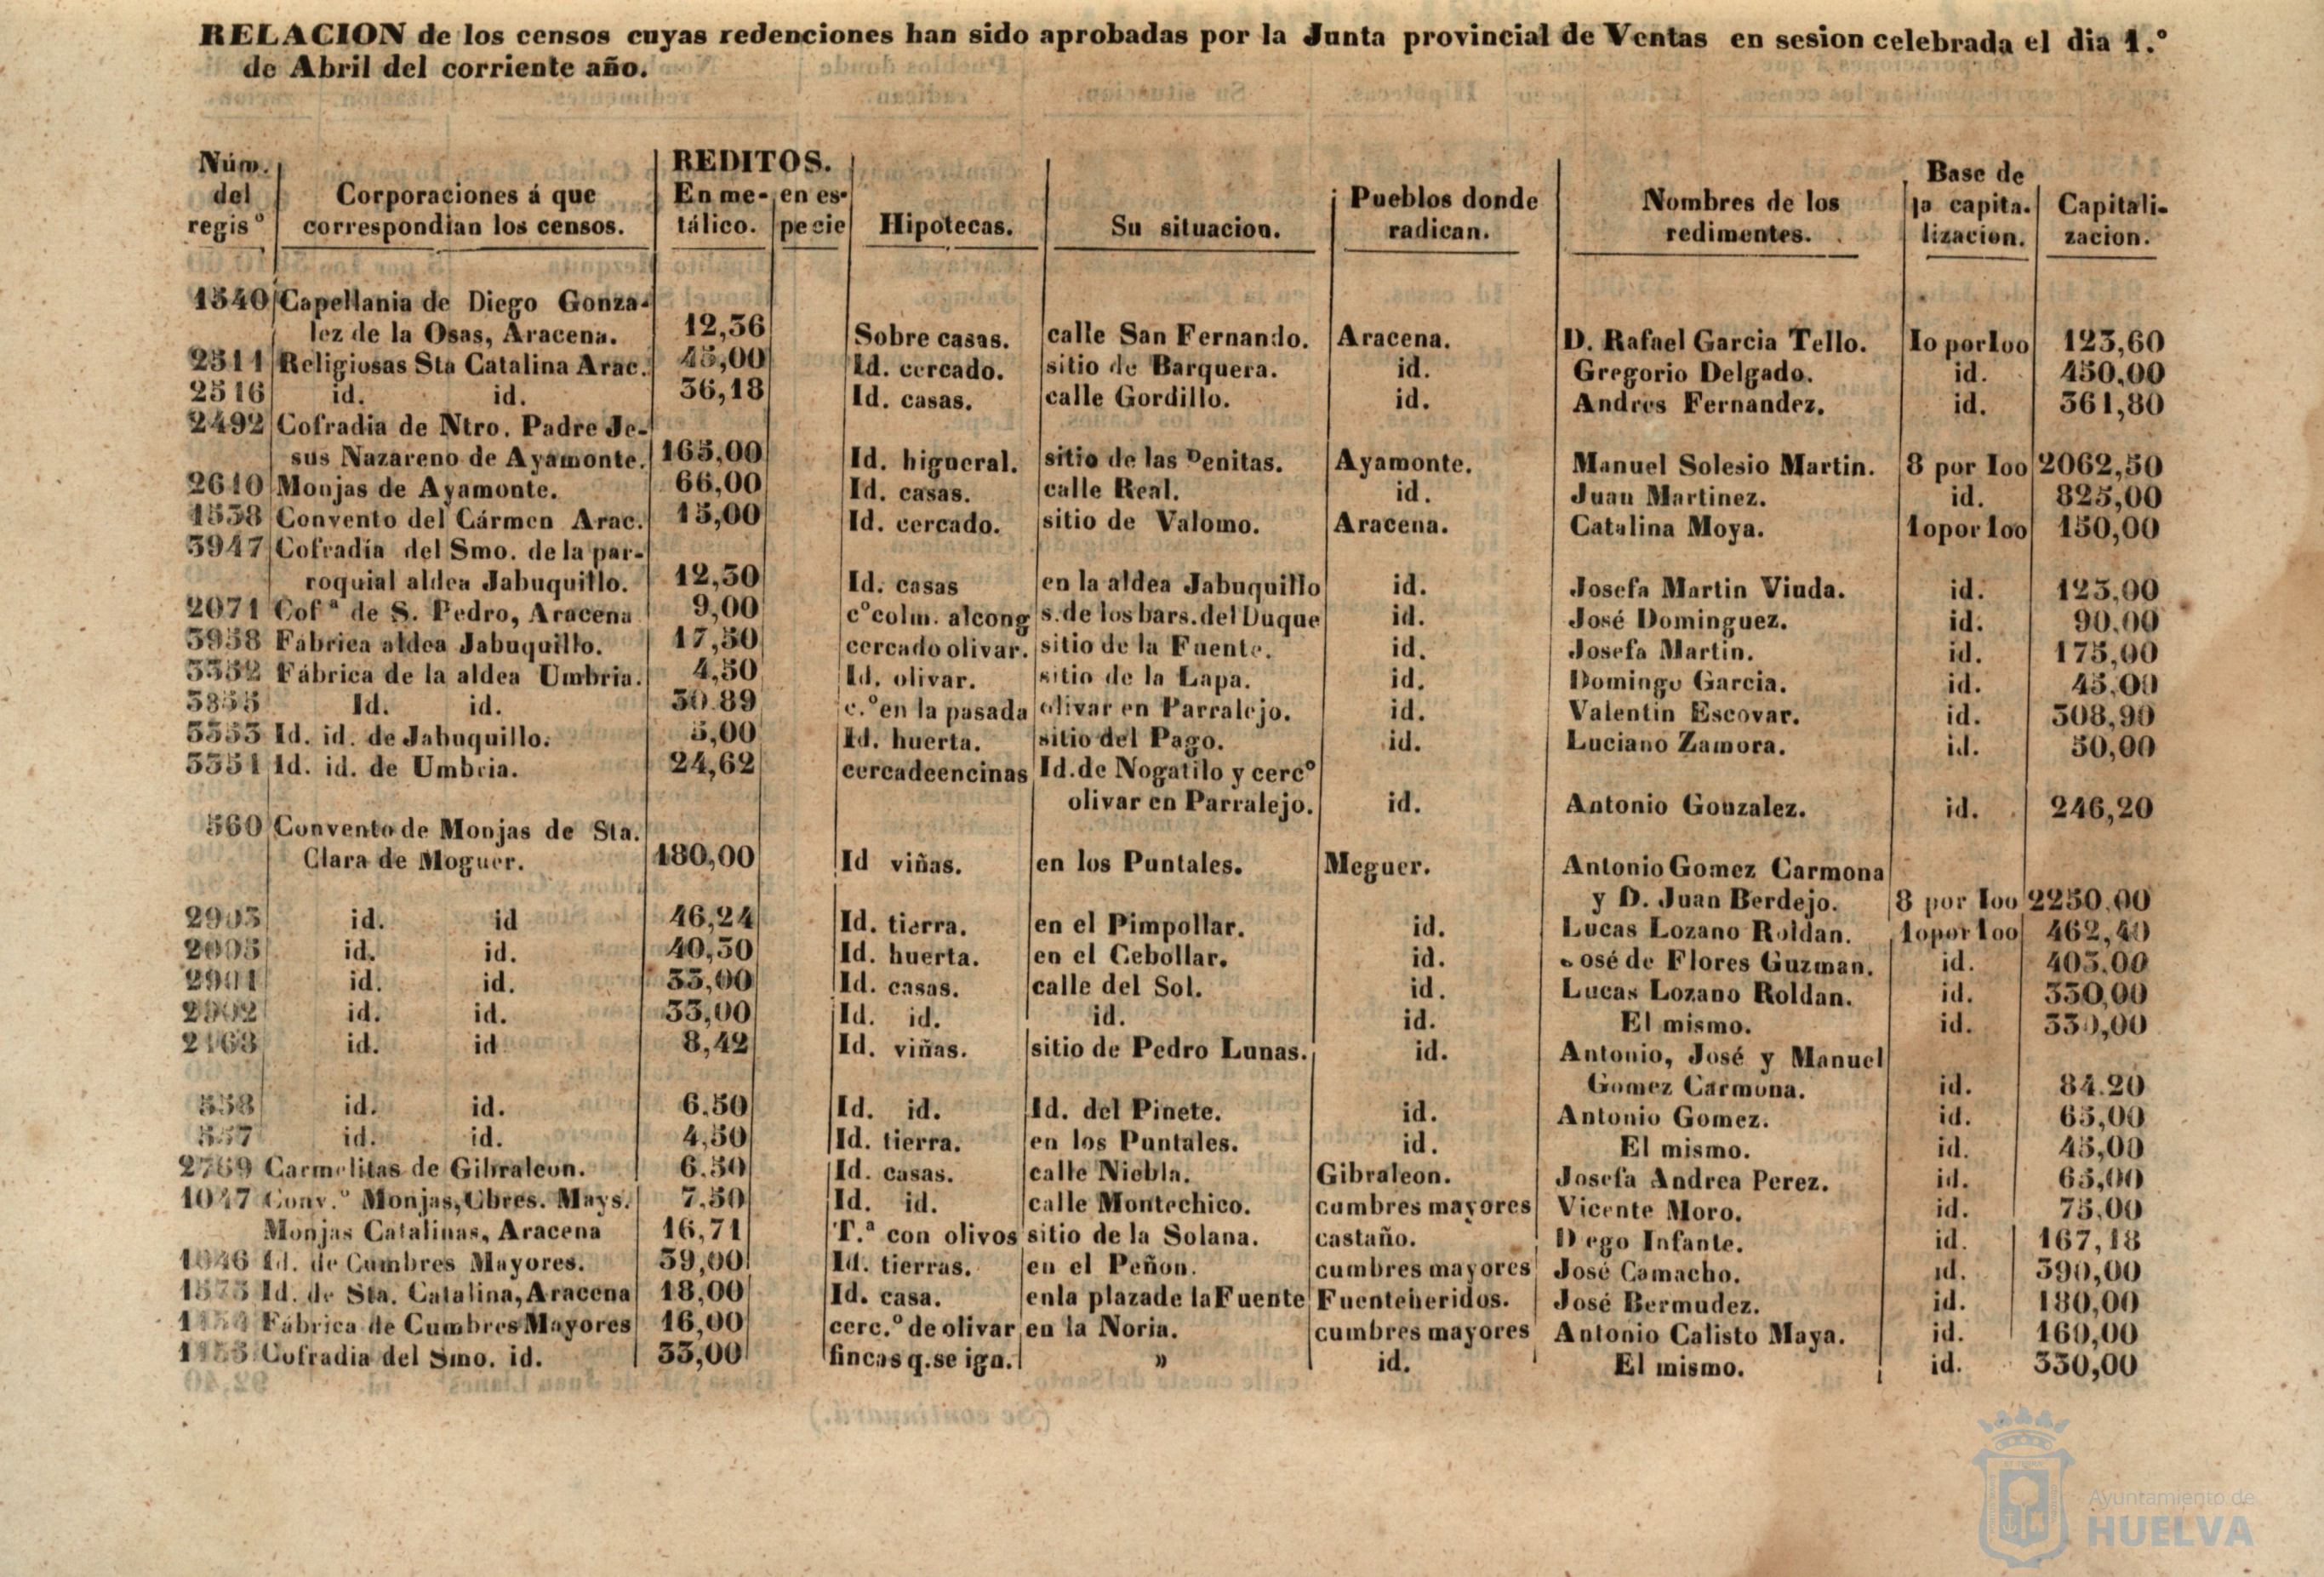 RELACION de los censos cuyas redenciones han sido aprobadas por la Junta provincial de Ventas en sesion celebrada el dia 1.º
de Abril del corriente año.
Núm. del regisº | Corporaciones á que correspondian los censos. | REDITOS. En metálico. | en especie | Hipotecas. | Su situacion. | Pueblos donde radican. | Nombres de los redimentes. | Base de la capitalizacion. | Capitalizacion.
1340 Capellania de Diego Gonza-
lez de la Osas, Aracena. 12,36 Sobre casas. calle San Fernando. Aracena. D. Rafael Garcia Tello. Io por Ioo 123,60
2311 Religiosas Sta Catalina Arac. 45,00 Id. cercado. sitio de Barquera. id. Gregorio Delgado. id. 450,00
2316 id. id. 36,18 Id. casas. calle Gordillo. id. Andres Fernandez. id. 361,80
2492 Cofradia de Ntro. Padre Je-
sus Nazareno de Ayamonte. 165,00 Id. higueral. sitio de las Penitas. Ayamonte. Manuel Solesio Martin. 8 por Ioo 2062,50
2610 Monjas de Ayamonte. 66,00 Id. casas. calle Real. id. Juan Martinez. id. 825,00
1338 Convento del Cármen Arac. 15,00 Id. cercado. sitio de Valomo. Aracena. Catalina Moya. 1o por 1oo 150,00
3947 Cofradía del Smo. de la par-
roquial aldea Jabuquillo. 12,30 Id. casas en la aldea Jabuquillo id. Josefa Martin Viuda. id. 123,00
2071 Cofª de S. Pedro, Aracena 9,00 cº colm. alcong s. de los bars. del Duque id. José Dominguez. id. 90,00
3938 Fábrica aldea Jabuquillo. 17,50 cercado olivar. sitio de la Fuente. id. Josefa Martin. id. 175,00
3352 Fábrica de la aldea Umbria. 4,50 Id. olivar. sitio de la Lapa. id. Domingo Garcia. id. 45,00
Id. id. 30.89 c.º en la pasada olivar en Parralejo. id. Valentin Escovar. id. 308,90
3353 Id. id. de Jabuquillo. 5,00 Id. huerta. sitio del Pago. id. Luciano Zamora. id. 50,00
3351 Id. id. de Umbria. 24,62 cercadeencinas Id. de Nogatilo y cercº
olivar en Parralejo. id. Antonio Gonzalez. id. 246,20
560 Convento de Monjas de Sta.
Clara de Moguer. 180,00 Id viñas. en los Puntales. Meguer. Antonio Gomez Carmona
y D. Juan Berdejo. 8 por Ioo 2250,00
id. id 46,24 Id. tierra. en el Pimpollar. id. Lucas Lozano Roldan. 1o por 1oo 462,40
id. id. 40,30 Id. huerta. en el Cebollar. id. José de Flores Guzman. id. 403.00
id. id. 33,00 Id. casas. calle del Sol. id. Lucas Lozano Roldan. id. 330,00
id. id. 33,00 Id. id. id. id. El mismo. id. 330,00
id. id 8,42 Id. viñas. sitio de Pedro Lunas. id. Antonio, José y Manuel
Gomez Carmona. id. 84.20
id. id. 6.50 Id. id. Id. del Pinete. id. Antonio Gomez. id. 65,00
id. id. 4,50 Id. tierra. en los Puntales. id. El mismo. id. 45,00
2769 Carmelitas de Gibraleon. 6.50 Id. casas. calle Niebla. Gibraleon. Josefa Andrea Perez. id. 65,00
1047 Conv.º Monjas, Cbres. Mays. 7,50 Id. id. calle Montechico. cumbres mayores Vicente Moro. id. 75,00
Monjas Catalinas, Aracena 16,71 T.ª con olivos sitio de la Solana. castaño. Diego Infante. id. 167,18
1046 Id. de Cumbres Mayores. 39,00 Id. tierras. en el Peñon. cumbres mayores José Camacho. id. 390,00
1573 Id. de Sta. Catalina, Aracena 18,00 Id. casa. enla plazade la Fuente Fuenteheridos. José Bermudez. id. 180,00
Fábrica de Cumbres Mayores 16,00 cerc.º de olivar en la Noria. cumbres mayores Antonio Calisto Maya. id. 160,00
Cofradia del Smo. id. 33,00 fincas q. se ign. » id. El mismo. id. 330,00
Ayuntamiento de
HUELVA